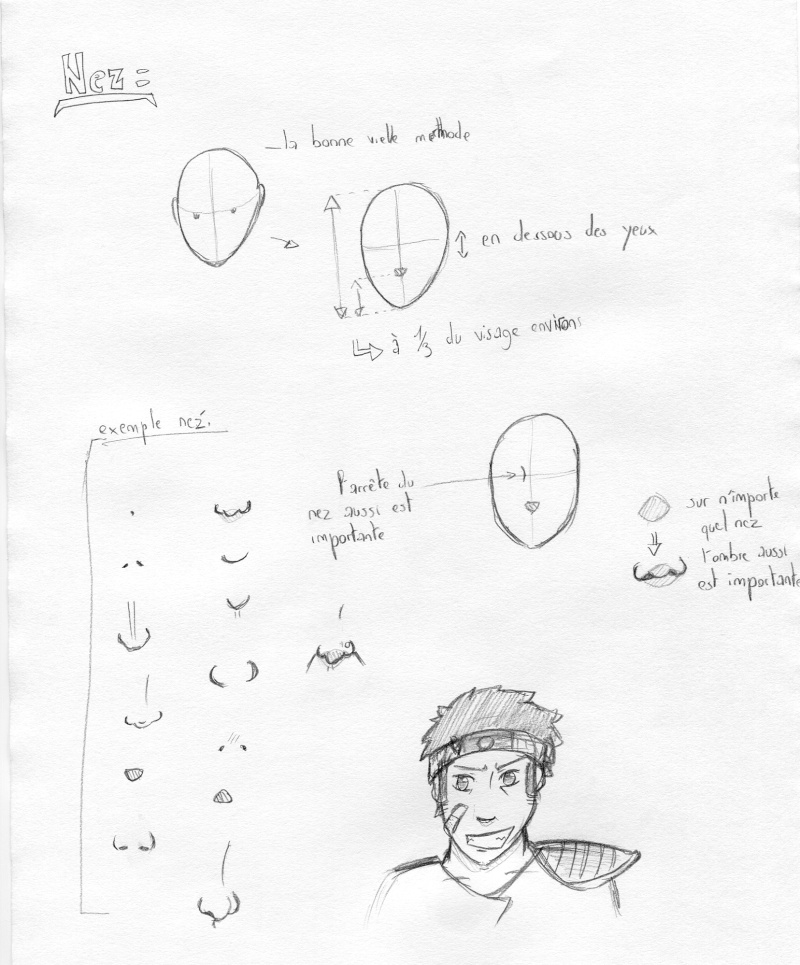 Nez :
la bonne vielle methode
en dessous des yeux
à 1/3 du visage environs
exemple nez.
l'arrête du
nez aussi est
importante
sur n'importe
quel nez
l'ombre aussi
est importante